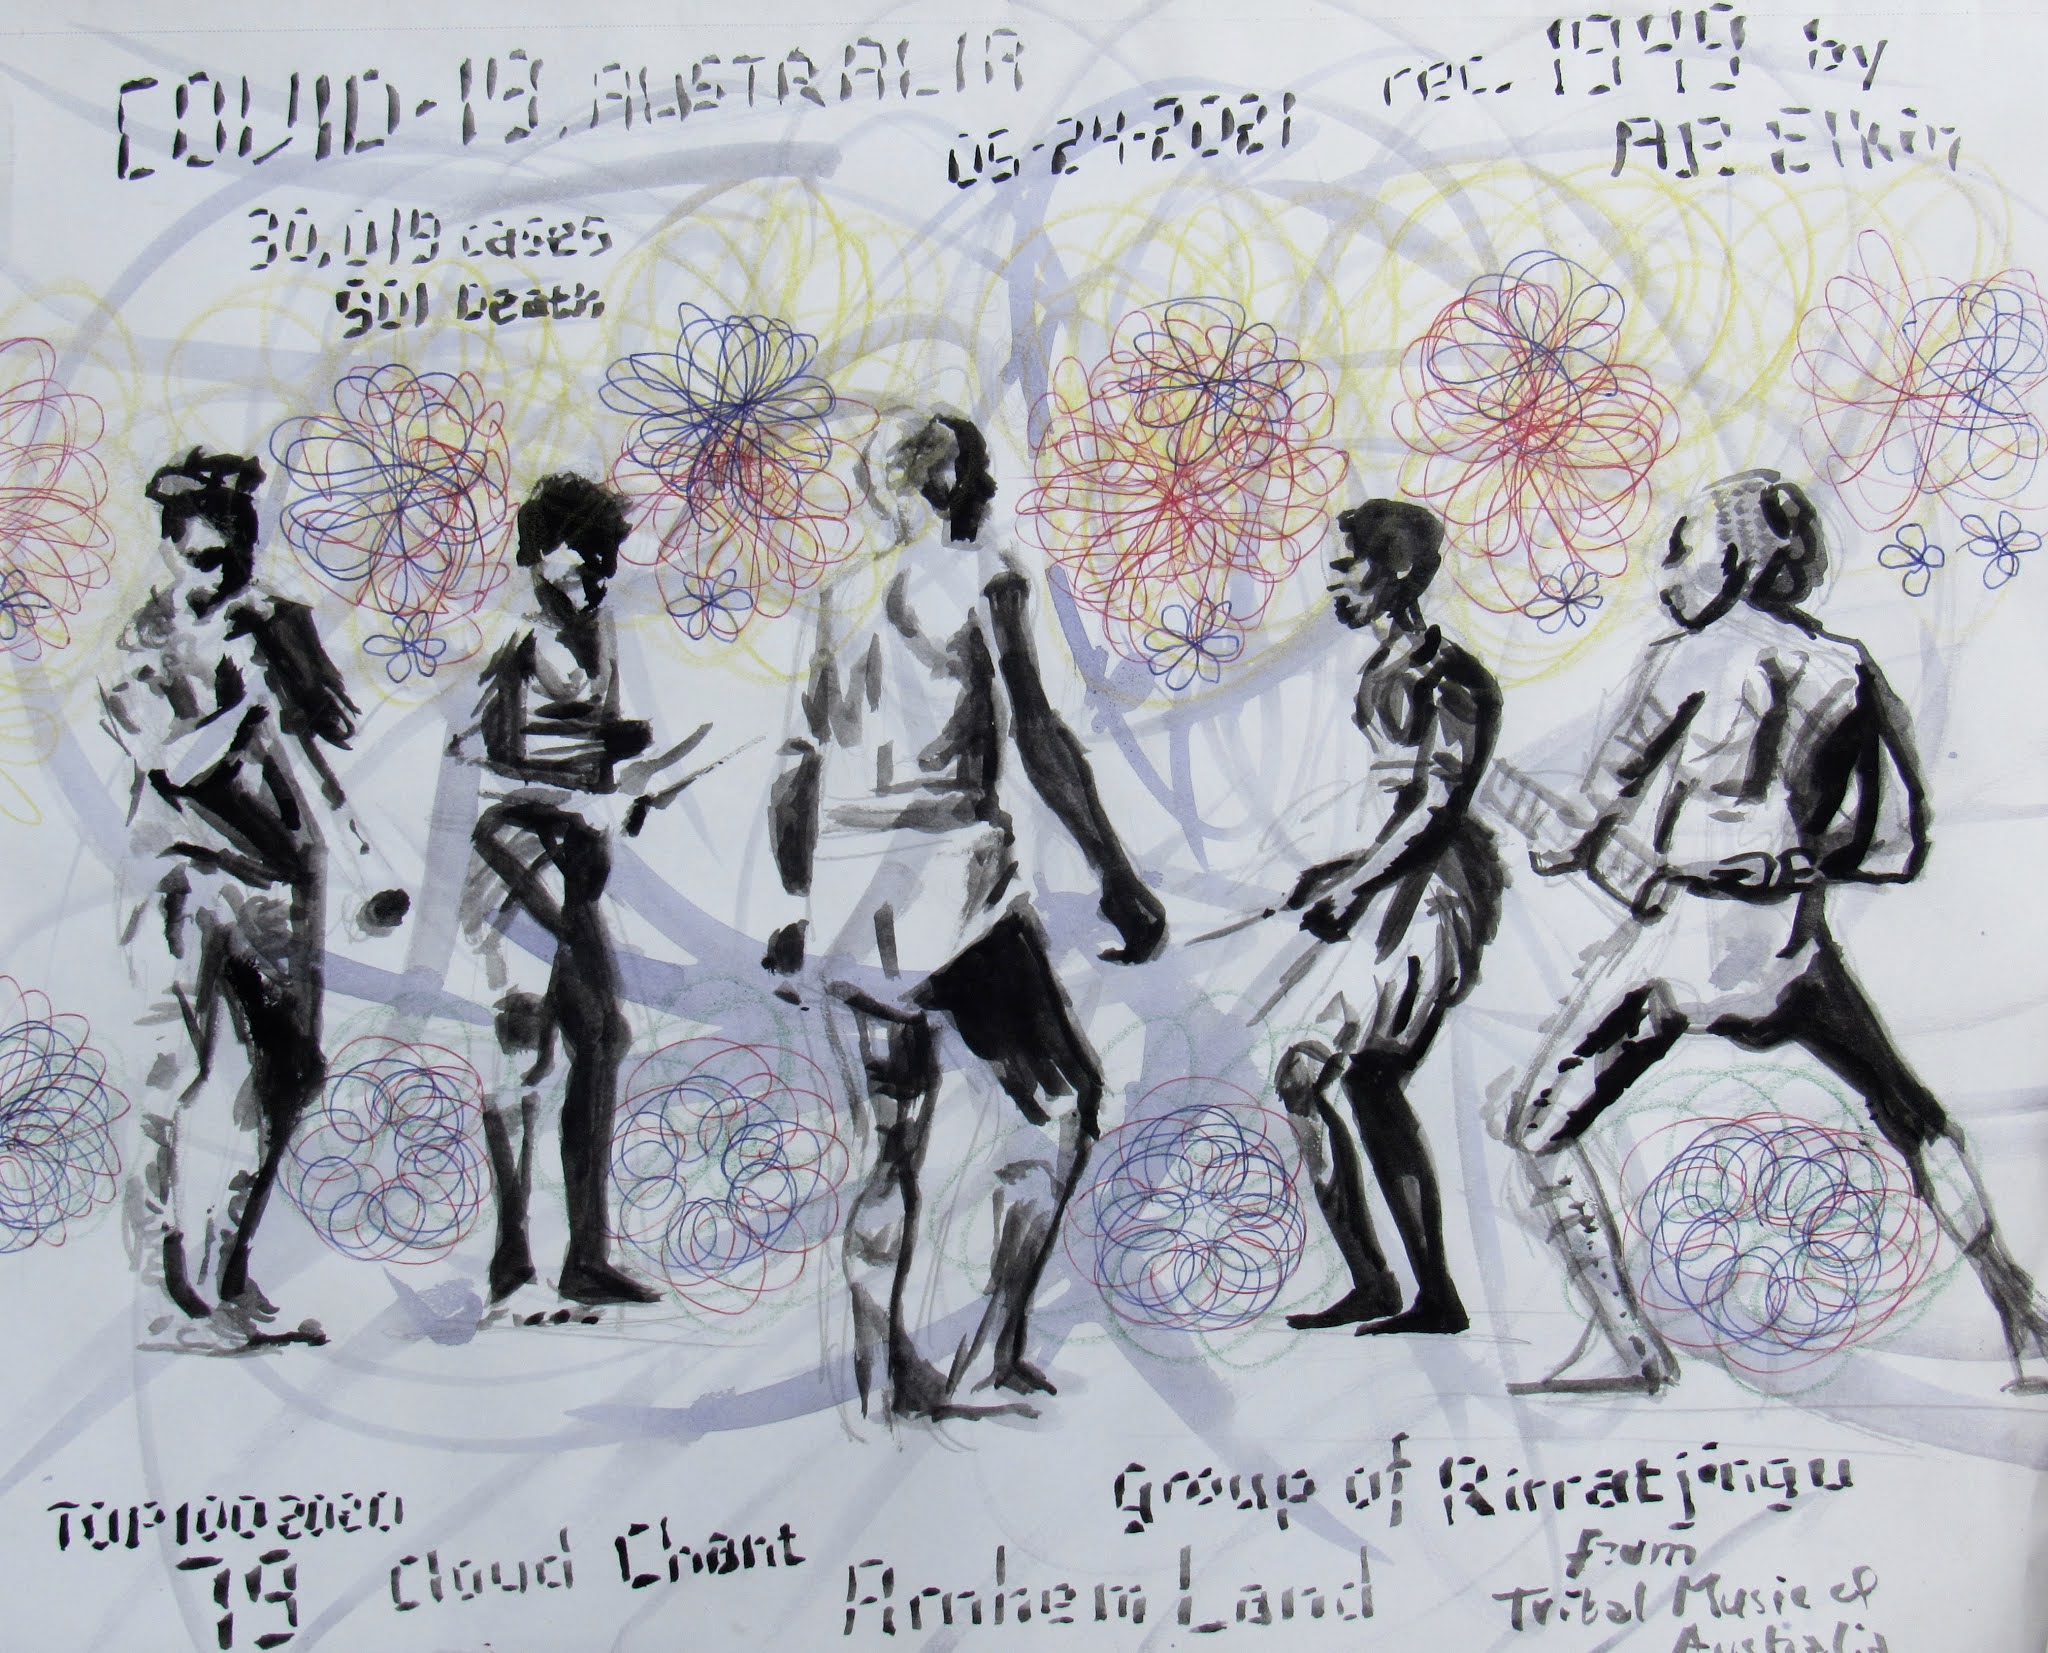 COVID-19. AUSTRALIA
05-24-2021
rec. 1949 by
A.P. Elkin
30,019 cases
901 Death
TOP100 2020
79
Cloud Chant
Arnhem Land
group of Rirratjingu
from
Tribal Music of
Australia